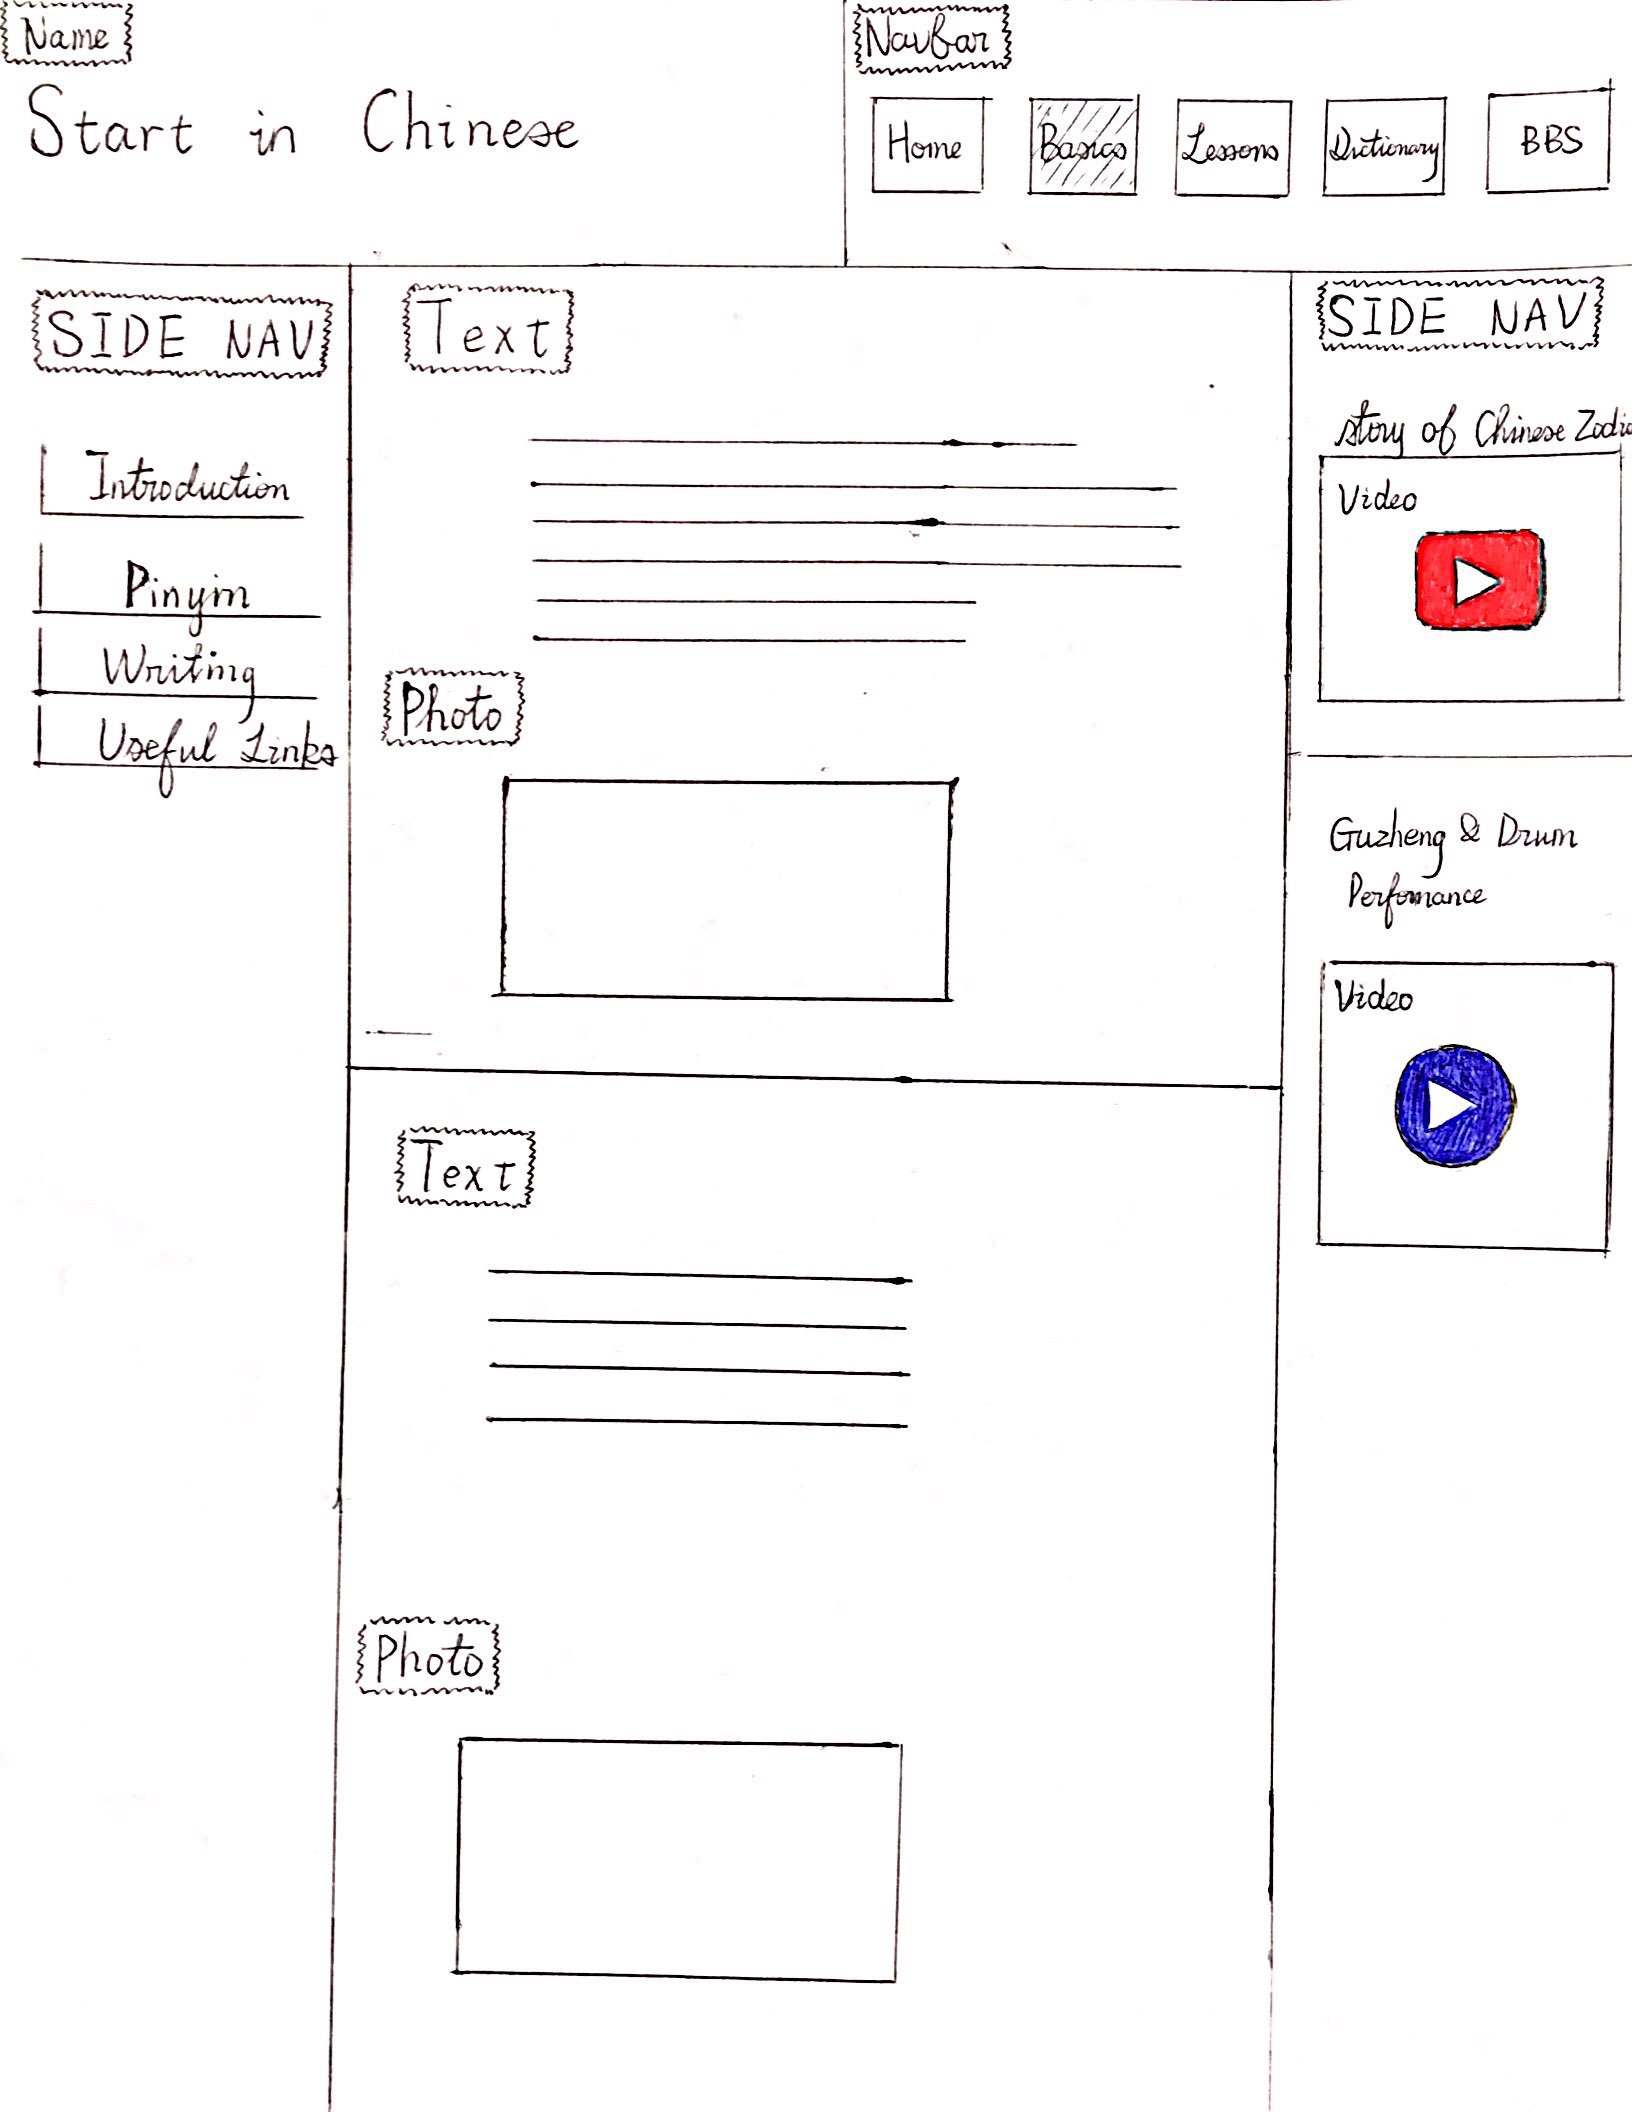 Name
Start in Chinese
Navbar
Home
Basics
Lessons
Dictionary
BBS
SIDE NAV
Introduction
Pinyin
Writing
Useful Links
Text
Photo
Text
Photo
SIDE NAV
story of Chinese Zodia
Video
Guzheng & Drum
Perfomance
Video